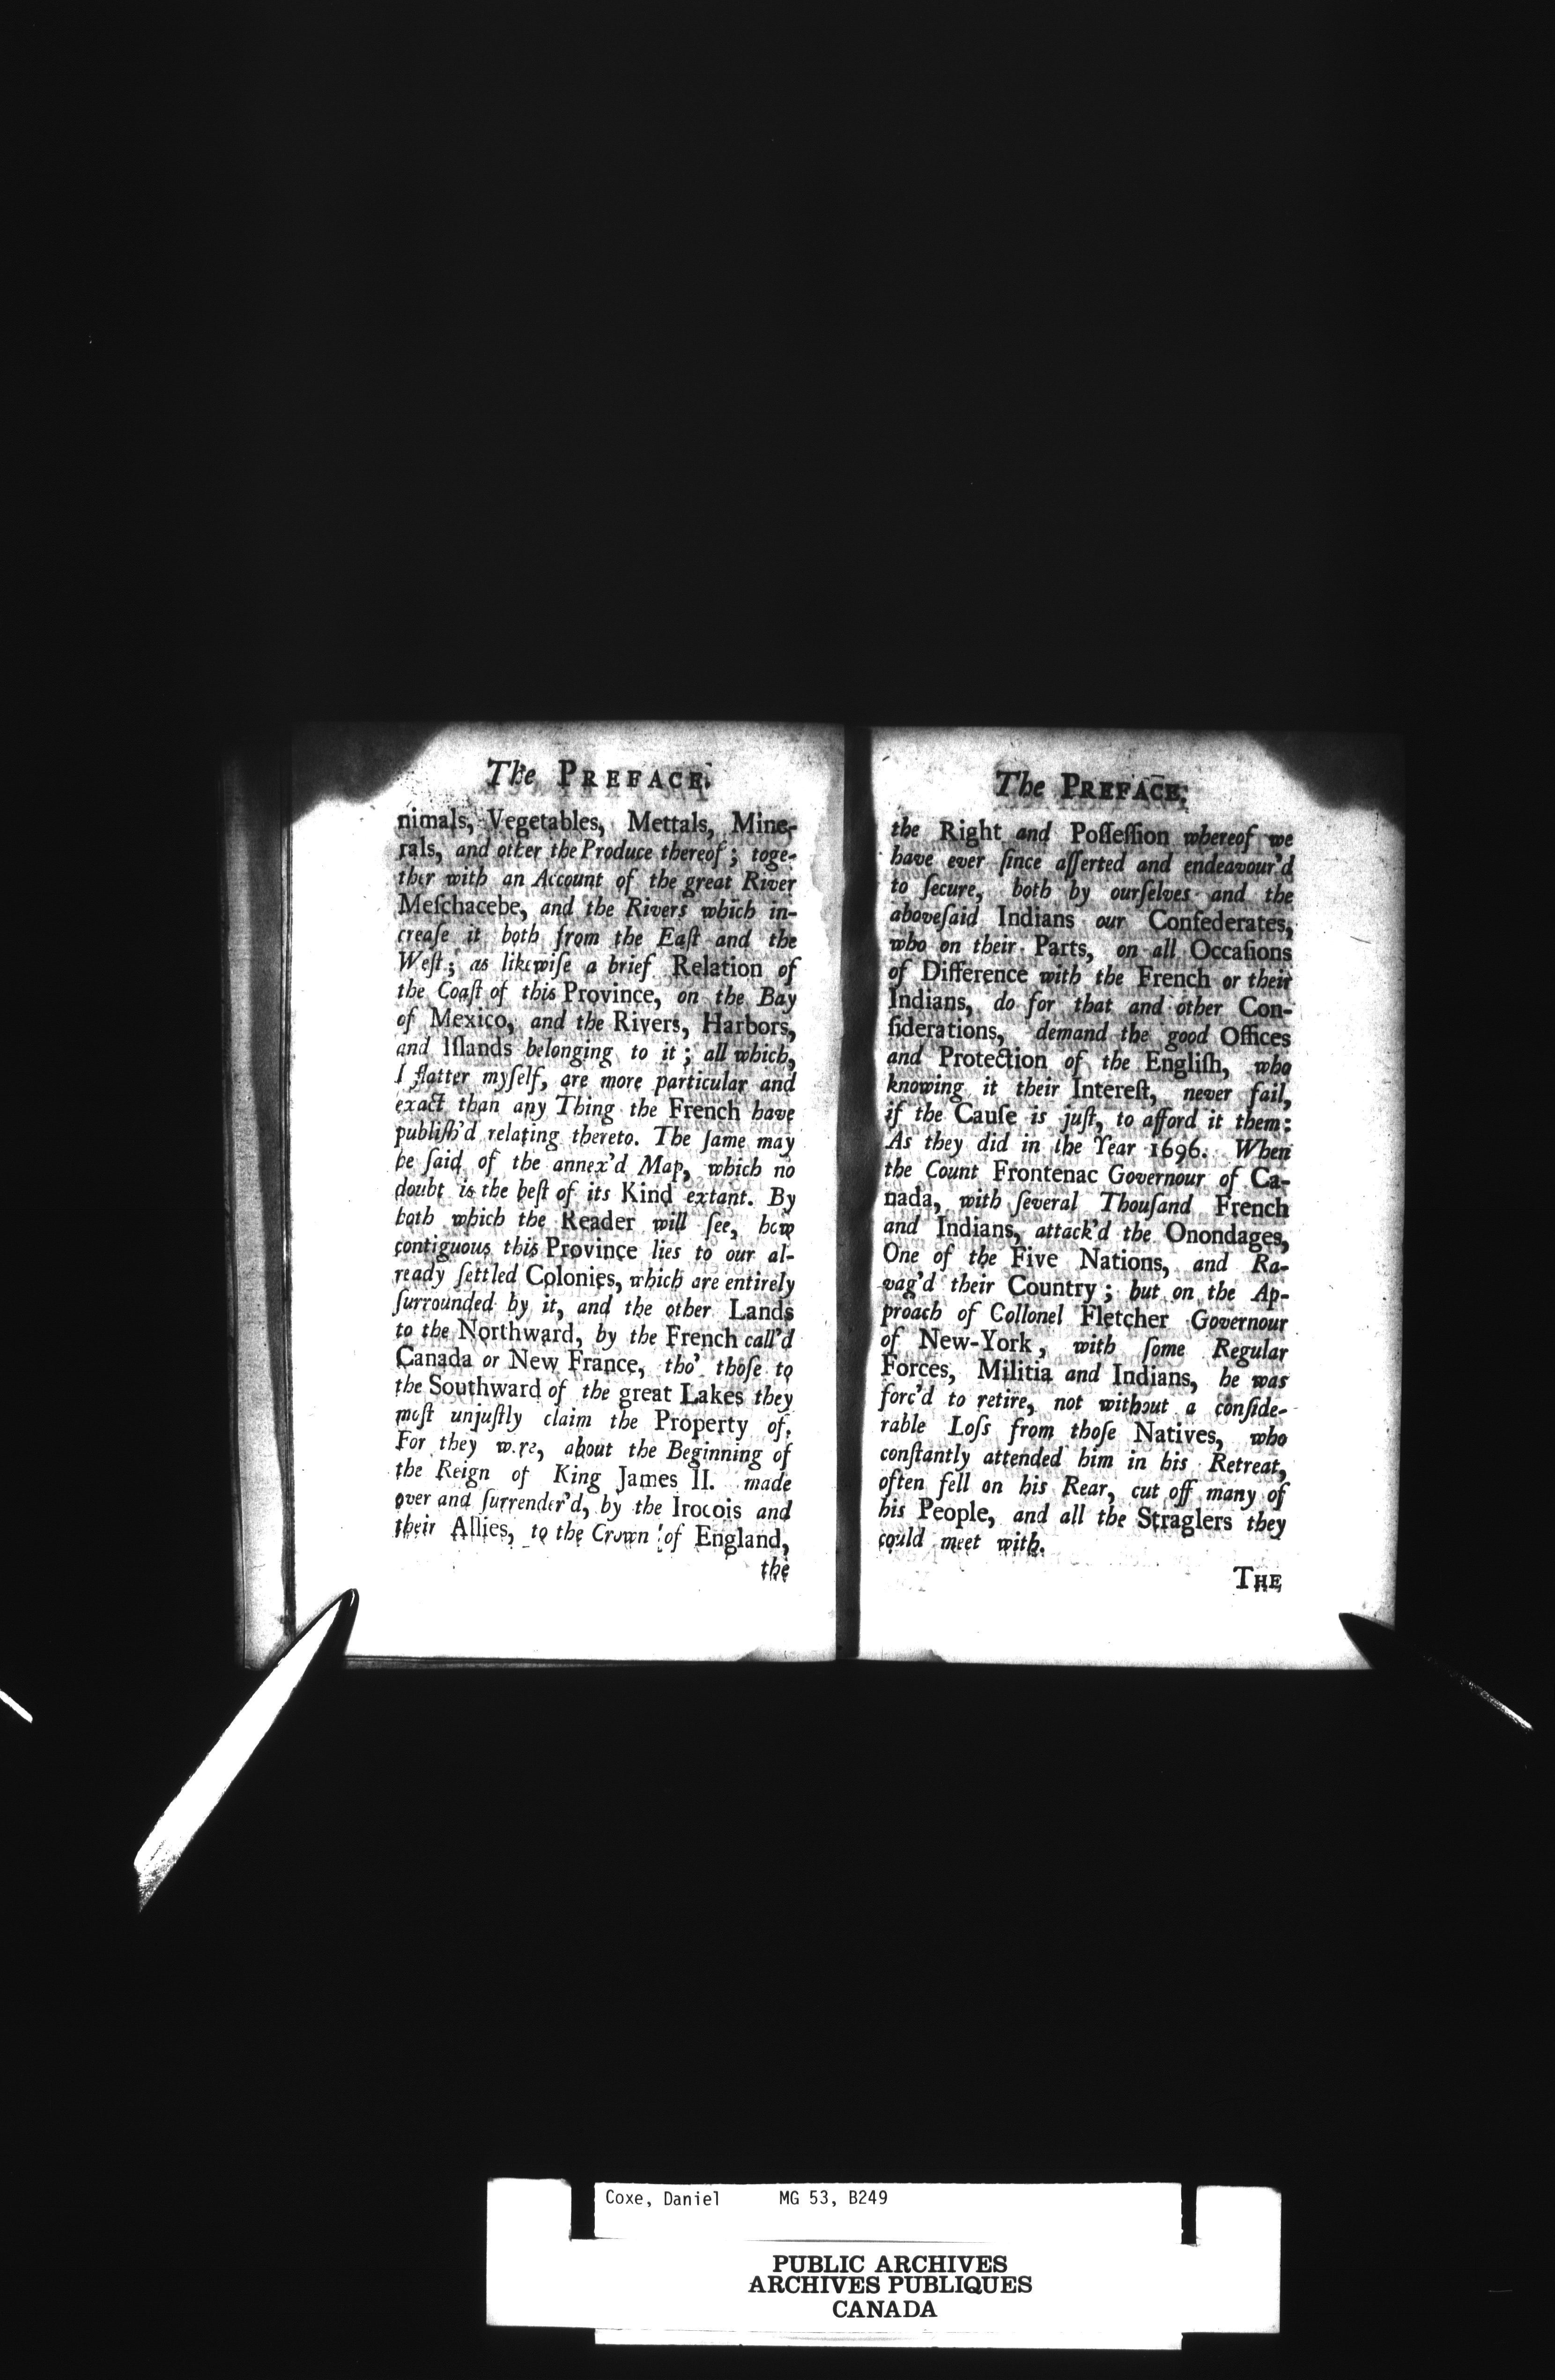 The PREFACE.
nimals, Vegetables, Mettals, Mine-
rals, and other the Produce thereof; toge-
ther with an Account of the great River
Meſchacebe, and the Rivers which in-
creaſe it both from the Eaſt and the
Weſt; as likewiſe a brief Relation of
the Coaſt of this Province, on the Bay
of Mexico, and the Rivers, Harbors,
and Iſlands belonging to it; all which,
I flatter myſelf, are more particular and
exact than any Thing the French have
publiſh'd relating thereto. The ſame may
be ſaid of the annex'd Map, which no
doubt is the beſt of its Kind extant. By
both which the Reader will ſee, how
contiguous this Province lies to our al-
ready ſettled Colonies, which are entirely
ſurrounded by it, and the other Lands
to the Northward, by the French call'd
Canada or New France, tho' thoſe to
the Southward of the great Lakes they
moſt unjuſtly claim the Property of.
For they w.re, about the Beginning of
the Reign of King James II. made
over and ſurrender'd, by the Irocois and
their Allies, to the Crown of England,
the
The PREFACE.
the Right and Poſſeſſion whereof we
have ever ſince aſſerted and endeavour'd
to ſecure, both by ourſelves and the
aboveſaid Indians our Confederates,
who on their Parts, on all Occaſions
of Difference with the French or their
Indians, do for that and other Con-
ſiderations, demand the good Offices
and Protection of the Engliſh, who
knowing it their Intereſt, never fail,
if the Cauſe is juſt, to afford it them:
As they did in the Year 1696. When
the Count Frontenac Governour of Ca-
nada, with ſeveral Thouſand French
and Indians, attack'd the Onondages,
One of the Five Nations, and Ra-
vag'd their Country; but on the Ap-
proach of Collonel Fletcher Governour
of New-York, with ſome Regular
Forces, Militia and Indians, he was
forc'd to retire, not without a conſide-
rable Loſs from thoſe Natives, who
conſtantly attended him in his Retreat,
often fell on his Rear, cut off many of
his People, and all the Straglers they
could meet with.
THE
Coxe, Daniel MG 53, B249
PUBLIC ARCHIVES
ARCHIVES PUBLIQUES
CANADA